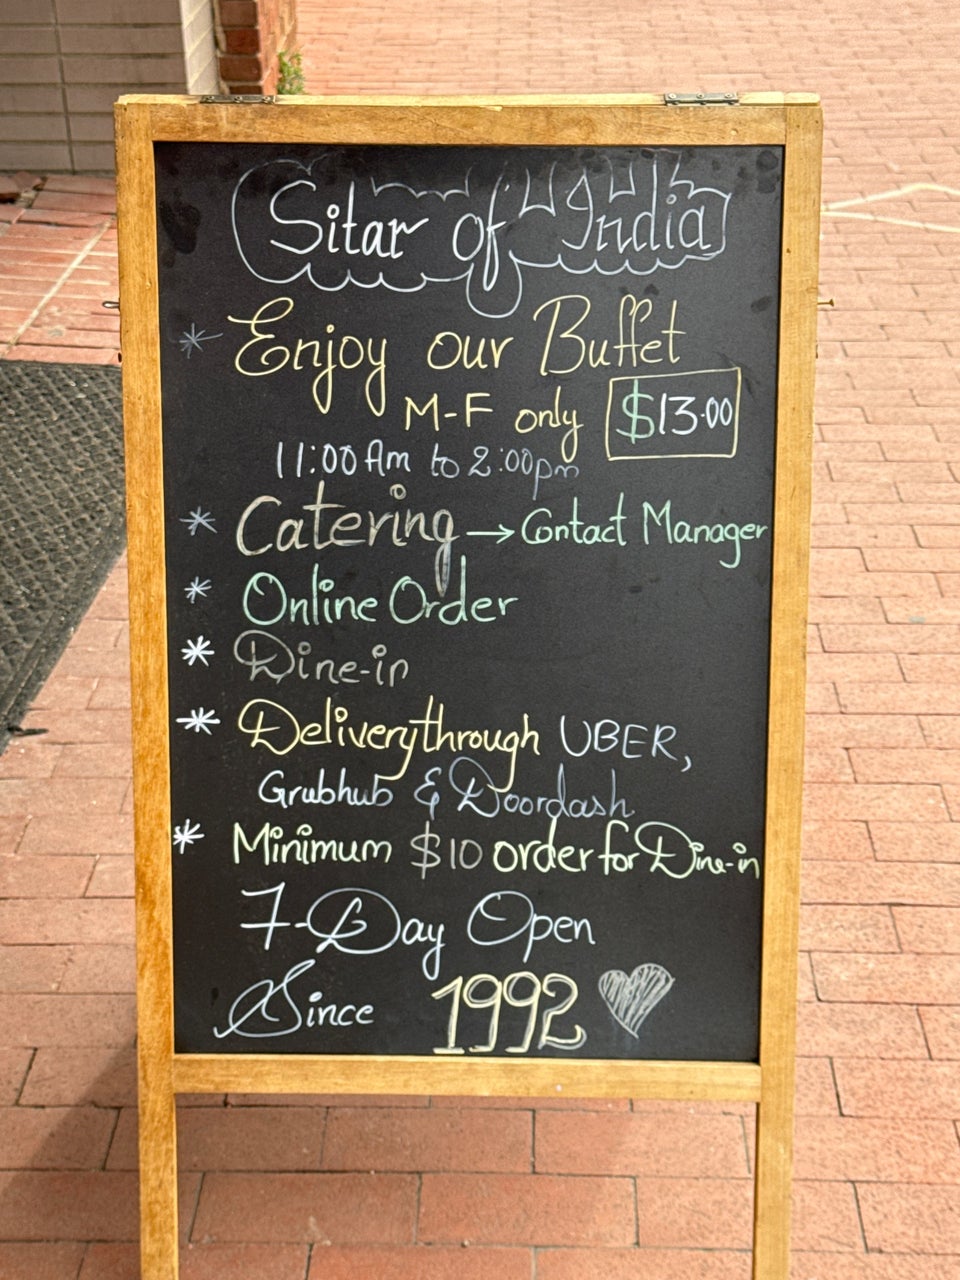 Sitar of India
* Enjoy our Buffet
M-F only $13.00
11:00 Am to 2:00pm
* Catering → Contact Manager
* Online Order
* Dine-in
* Delivery through UBER,
Grubhub & Doordash
* Minimum $10 order for Dine-in
7-Day Open
Since 1992